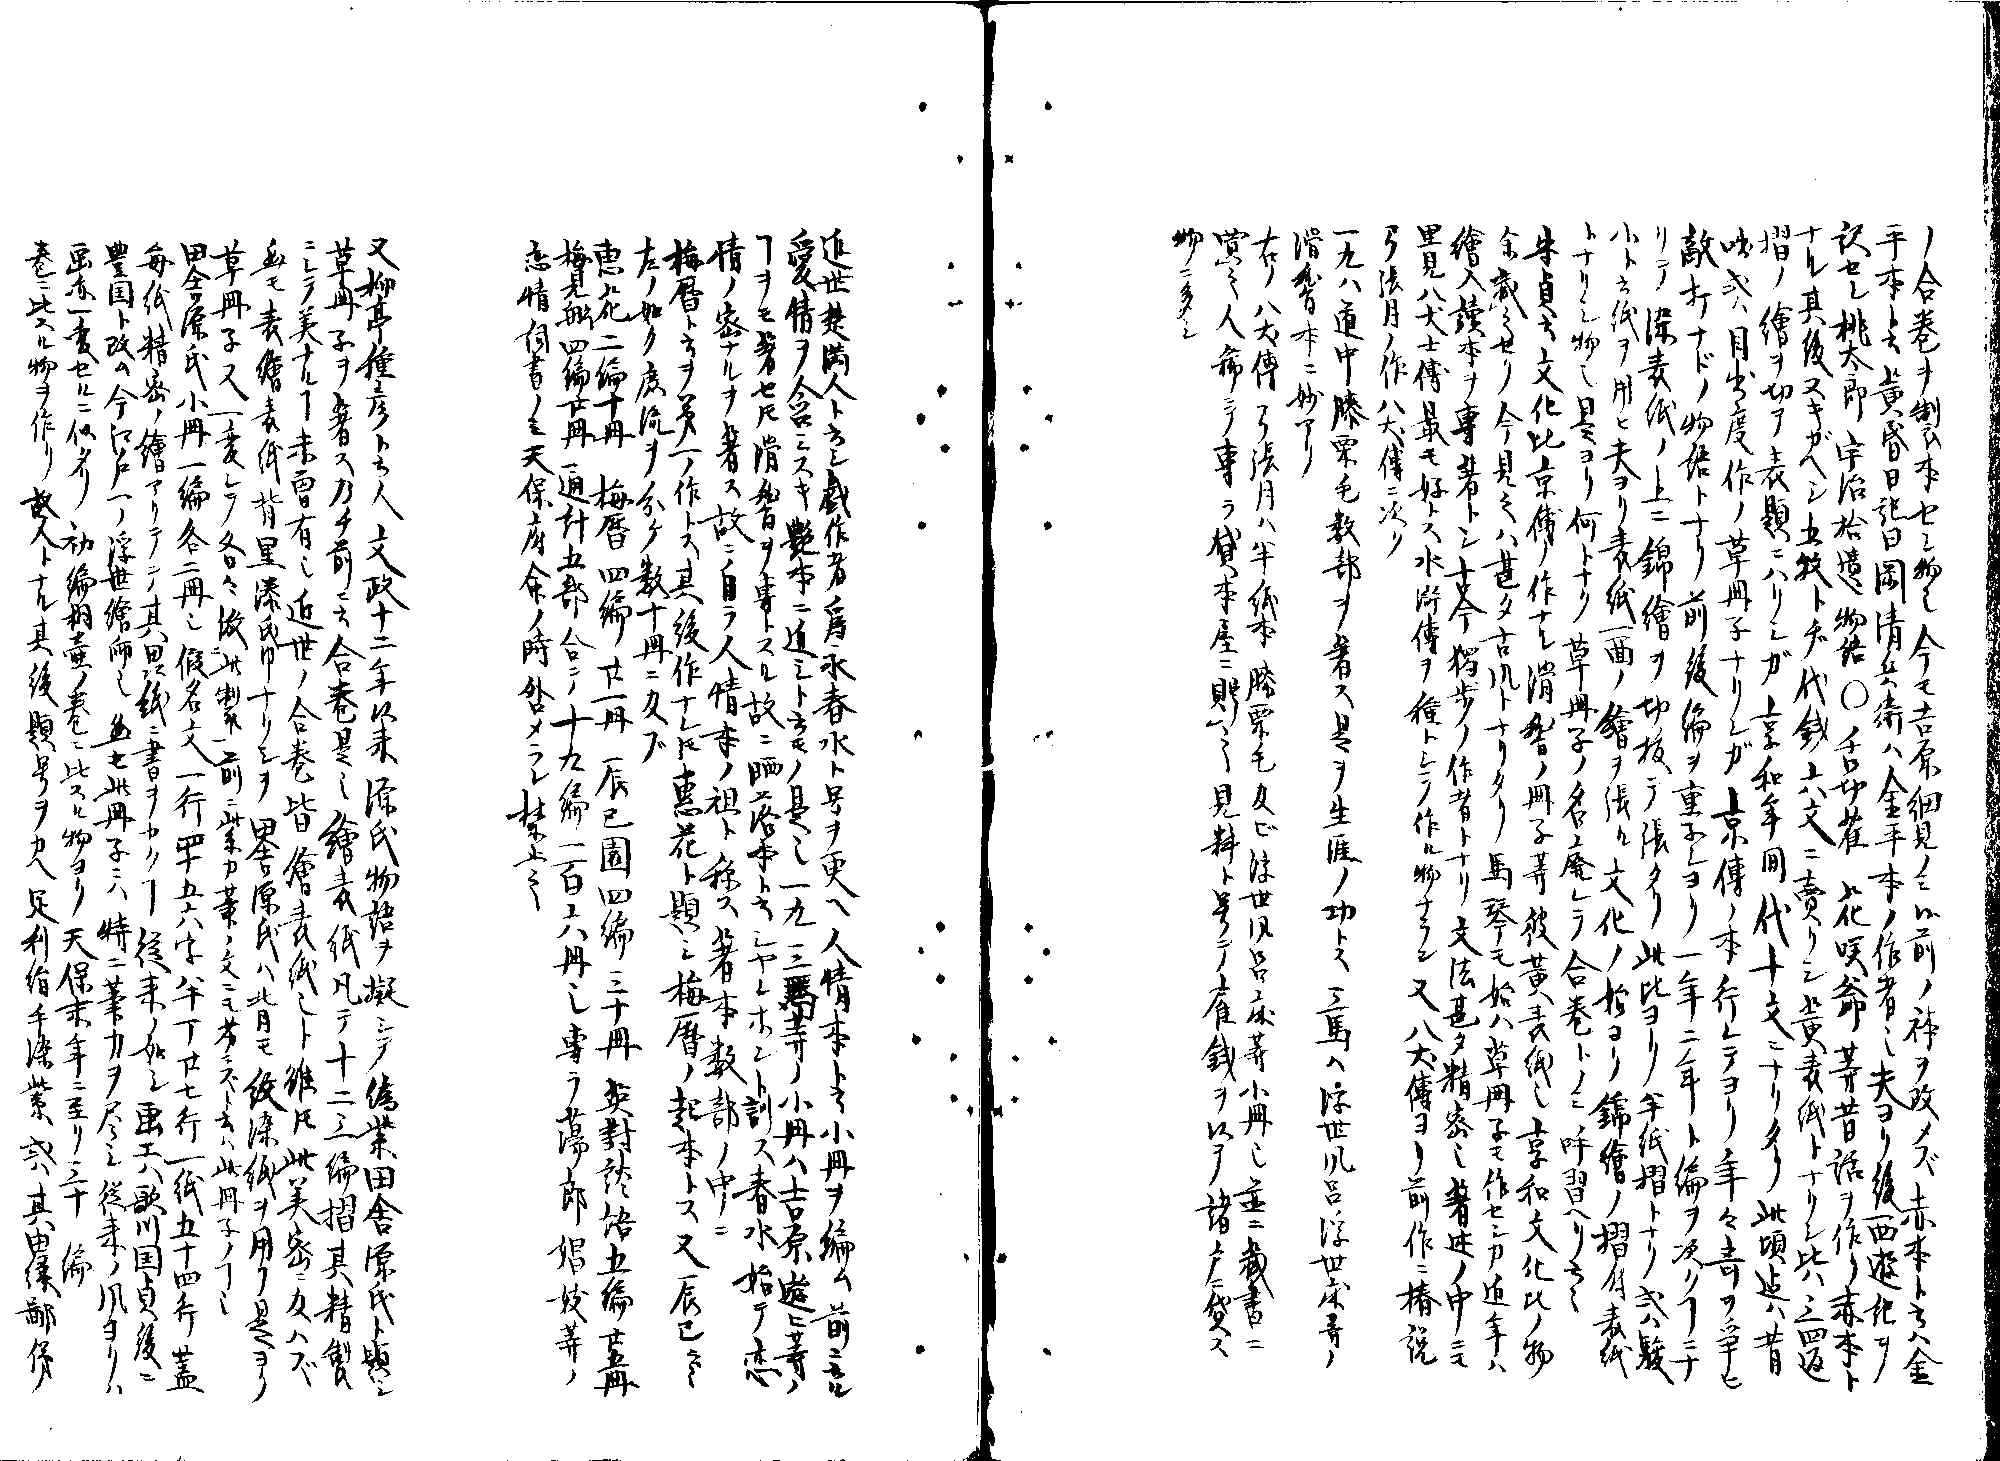 ノ合巻ヲ製ス本セシ物也今モ吉原細見ノミ以前ノ体ヲ改メズ赤本ト云ハ金
平本ト云黄昏日記曰岡清兵衛ハ金平本ノ作者也夫ヨリ後西遊記ヲ
訳セシ桃太郎宇治拾遺物語〇舌切雀花咲爺等昔話ヲ作リ赤本ト
ナル其後又スキガヘシ五枚トヂ代銭六文ニ賣リシ黄表紙トナリシ比ハ三四返
摺ノ繪ヲ切テ表題ニハリシガ享和年間代十文ニナリタリ此頃迄ハ昔
咄或ハ目出度作ノ草冊子ナリシガ京傳ノ本行レテヨリ年々奇ヲ争ヒ
敵打ナドノ物語トナリ前後編ヲ重子シヨリ一年二年ト編ヲ次クヿニナ
リテ深表紙ノ上ニ錦繪ヲ切抜テ張タリ此比ヨリ半紙摺トナリ或ハ駿
小ト云紙ヲ用ヒ夫ヨリ表紙一面ノ繪ヲ張ル文化ノ始ヨリ錦繪ノ摺付表紙
トナリシ物也是ヨリ何トナク草冊子ノ名ハ廃レテ合巻トノミ呼習ヘリ云々
朱貞云文化比京傳ノ作ナル滑稽ノ冊子等彼黄表紙也享和文化比ノ物
余蔵セリ今見之ハ甚タ古風トナリタリ馬琴モ始ハ草冊子モ作セシカ近年ハ
繪入讀本ヲ専著トシ古今獨歩ノ作者トナリ文法甚タ精密也著述ノ中ニモ
里見八犬士傳最モ好トス水滸傳ヲ種トシテ作ル物ナラン又八犬傳ヨリ前作ニ椿説
弓張月ノ作八犬傳ニ次リ
一九ハ道中膝栗毛数部ヲ著ス是ヲ生涯ノ功トス三馬ハ浮世風呂浮世床等ノ
滑稽本ニ妙アリ
右ノ八犬傳弓張月ハ半紙本膝栗毛及ビ浮世風呂床等小冊也並ニ戯書ニ
賞之人稀ニテ専ラ貸本屋ニ賜之見料ト号テ雇銭ヲ以テ諸戸ニ貸ス
物ニ多シ
近世楚満人ト云シ戯作者為永春水ト号ヲ更ヘ人情本ト云小冊ヲ編ム前ニ云ル
愛情ヲ含ミスキ艶本ニ近シト云モノ是也一九三馬等ノ小冊ハ吉原遊ヒ等ノ
ヿヲモ著セモ滑稽ヲ専トスル故ニ晒落本ト云シヤレホント訓ス春水始テ恋
情ノ密ナルヲ著ス故ニ自ラ人情本ノ祖ト称ス著本数部ノ中ニ
梅暦ト云ヲ第一ノ作トス其後作ナレモ恵花ト題シ梅暦ノ起本トス又辰巳云々
左ノ如ク庶流ヲ分ケ数十冊ニ及ブ
恵花二編十冊 梅暦四編廿一冊 辰巳園四編三十冊 英對談語五編廿五冊
梅見船四編廿冊 通計五部合シテ十九編一百六冊也専ラ蕩郎娼妓等ノ
恋情ノ書ノミ天保府命ノ時咎メラレ禁止之
又柳亭種彦ト云人文政十二年以来源氏物語ヲ擬シテ偽紫田舎源氏ト題シ
草冊子ヲ著ス乃チ前ニ云合巻是也繪表紙凡テ十二三編摺其精製
ニシテ美ナルヿ未曽有也近世ノ合巻皆繪表紙也ト雖モ此美密ニ及ハズ
無モ表繪表紙背里漆印ナリシヲ田舎源氏ハ背モ紋深紙ヲ用フ是ヨリ
草冊子又一変シテ各々倣此製前ニ紫カ葉ノ文ニモ劣ラズト云ハ此冊子ノヿ也
田舎源氏小冊一編各二冊也假名文一行四十五六字半丁廿七行一紙五十四行蓋
毎紙精密ノ繪アリテ其異紙ニ書ヲカクヿ従来ノ如シ画工ハ歌川国貞後ニ
豊国ト改ム今江戸一ノ浮世繪師也無モ此冊子ニハ特ニ筆力ヲ尽シ従来ノ風ヨリハ
画亦一変セルニ似タリ 初編桐壷ノ巻ニ比スル物ヨリ天保末年ニ至リ三十 編
巻ニ比スル物ヲ作リ 故人トナル其後題号ヲカヘ足利絹手染紫或ハ其由縁鄙俤ノ